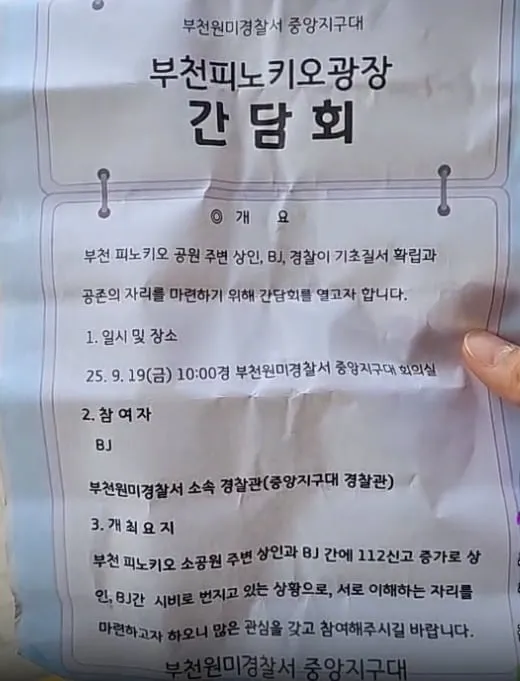 부천원미경찰서 중앙지구대
부천피노키오광장
간담회
◎ 개 요
부천 피노키오 공원 주변 상인, BJ, 경찰이 기초질서 확립과
공존의 자리를 마련하기 위해 간담회를 열고자 합니다.
1. 일시 및 장소
25. 9. 19(금) 10:00경 부천원미경찰서 중앙지구대 회의실
2. 참 여 자
BJ
부천원미경찰서 소속 경찰관(중앙지구대 경찰관)
3. 개 최 요 지
부천 피노키오 소공원 주변 상인과 BJ 간에 112신고 증가로 상
인, BJ간 시비로 번지고 있는 상황으로, 서로 이해하는 자리를
마련하고자 하오니 많은 관심을 갖고 참여해주시길 바랍니다.
부천원미경찰서 중앙지구대